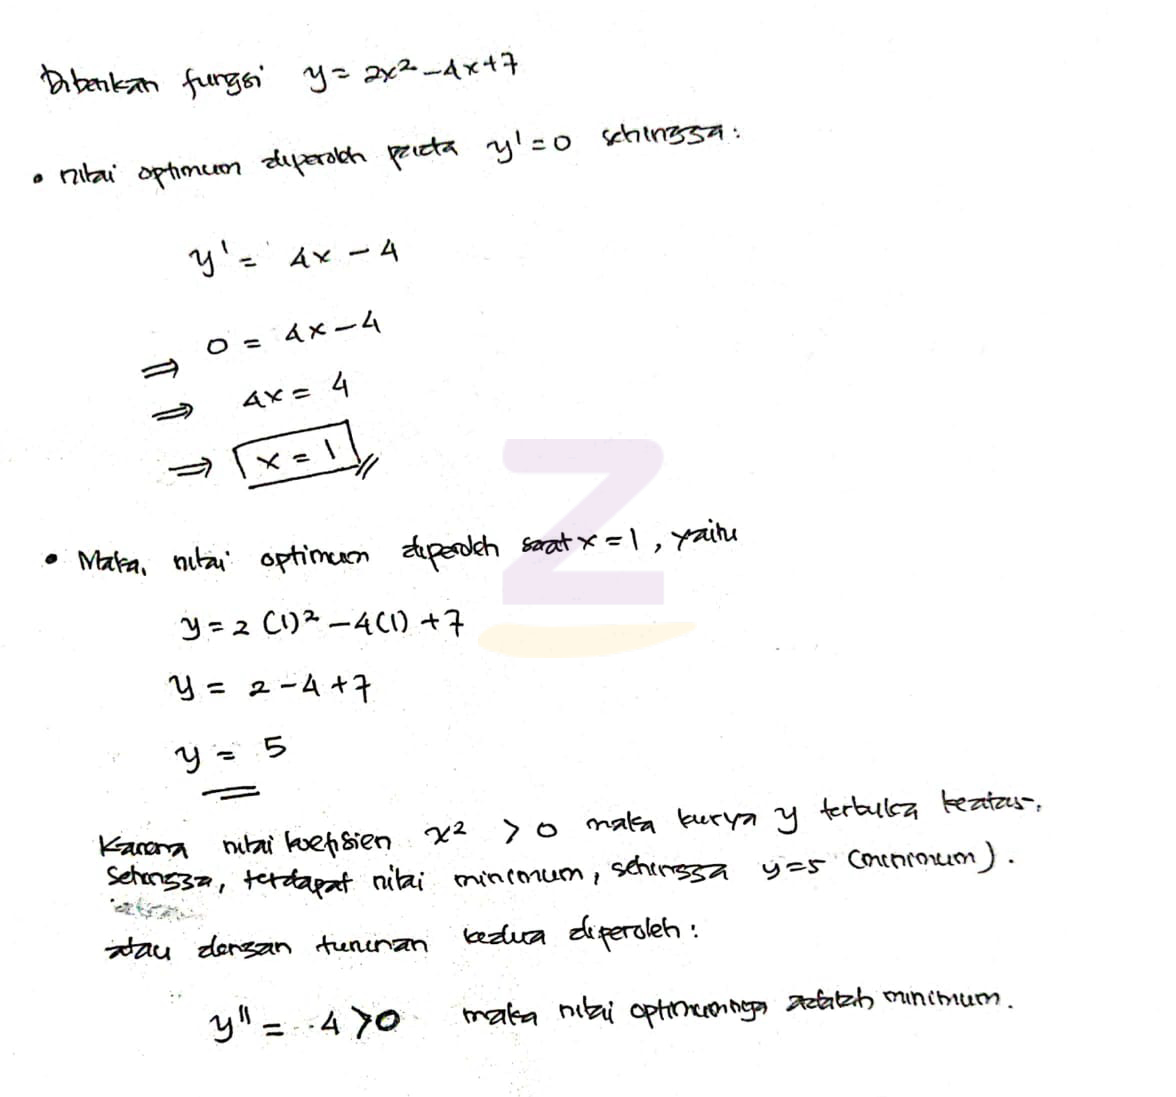 Diberikan fungsi y = 2x² - 4x + 7
• nilai optimum diperoleh pada y' = 0 sehingga :
y' = 4x - 4
⇒ 0 = 4x - 4
⇒ 4x = 4
⇒ x = 1
• Maka, nilai optimum diperoleh saat x = 1, yaitu
y = 2 (1)² - 4(1) + 7
y = 2 - 4 + 7
y = 5
Karena nilai koefisien x² > 0 maka kurva y terbuka keatas.
Sehingga, terdapat nilai minimum, sehingga y = 5 (minimum).
atau dengan turunan kedua diperoleh :
y'' = 4 > 0 maka nilai optimumnya adalah minimum.
Z